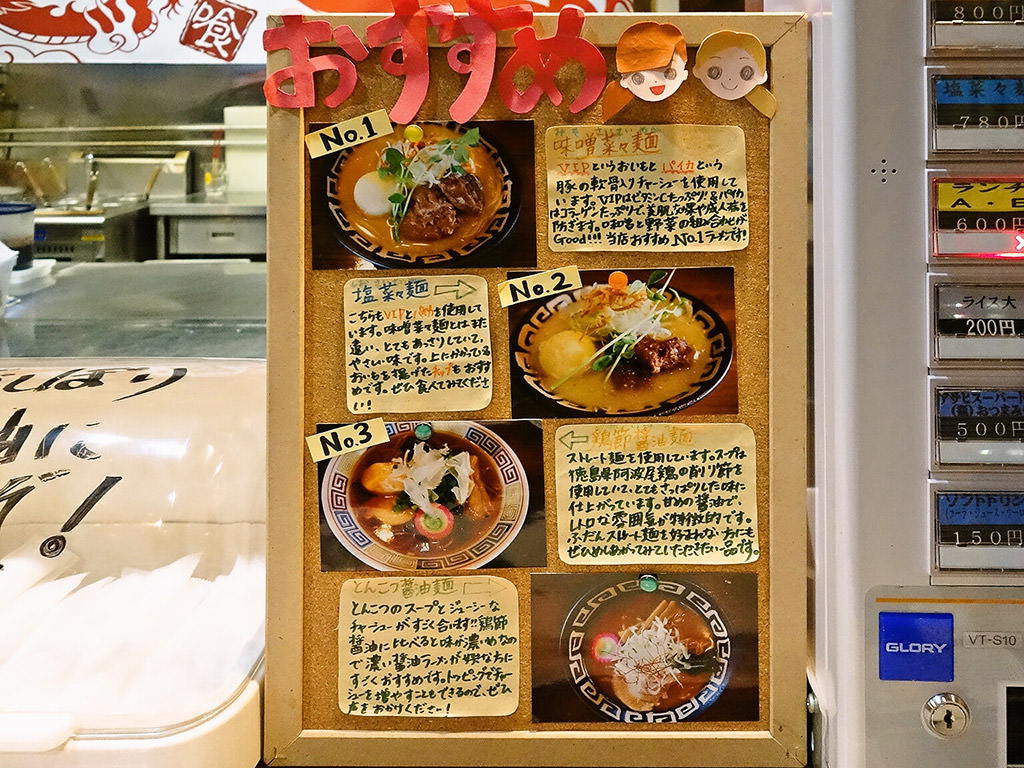 喰
おすすめ
No.1
味噌菜々麺
VIPというおいもと パイカという
豚の軟骨入りチャーシューを使用して
います。VIPはビタミンCたっぷり&パイカ
はコラーゲンたっぷりで、美肌効果や成人病を
防ぎます。味噌と野菜の組み合わせが
Good!!! 当店おすすめ No.1ラーメンです!
塩菜々麺
こちらもVIPとパイカを使用して
います。味噌菜々麺とはまた
違い、とてもあっさりしていて、
やさしい味です。上にかかっている
おいもを揚げたチップもおすす
めです。ぜひ食べてみてくださ
い!
No.2
No.3
鶏節醤油麺
ストレート麺を使用しています。スープは
徳島県阿波尾鶏の削り節を
使用していて、とてもさっぱりした味に
仕上がっています。甘めの醤油で、
レトロな雰囲気が特徴的です。
ふだんストレート麺を好まれない方にも
ぜひめしあがってみていただきたい一品です。
とんこつ醤油麺
とんこつのスープとジューシーな
チャーシューがすごく合います!!鶏節
醤油に比べると味が濃いめなの
で濃い醤油ラーメンが好きな方に
すごくおすすめです。トッピングでチャー
シューを増やすこともできるので、ぜひ
声をおかけください!
しぼり
油に
!
800円
塩菜々麺
780円
ランチ
A・B
600円
ライス大
200円
アサヒスーパード
(龍)おつまみ
500円
ソフトドリン
150円
GLORY
VT-S10